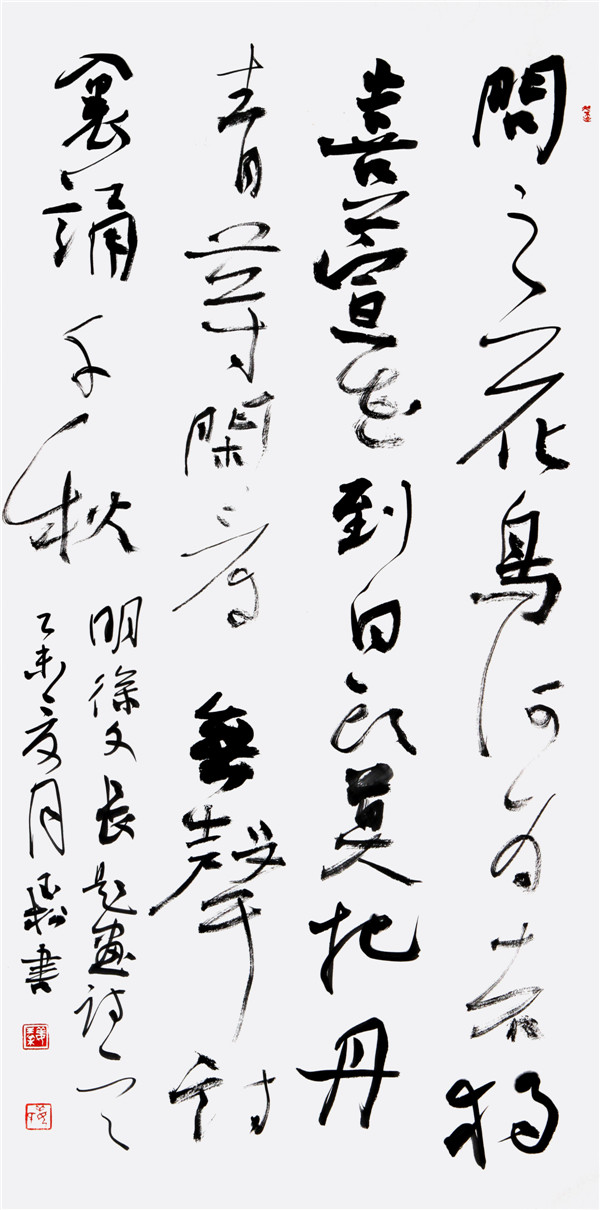 問之花鳥何為者獨
喜萱花到白頭莫把丹
青等閑看無聲詩
裏誦千秋
明徐文長題畫詩一首
乙未夏月書